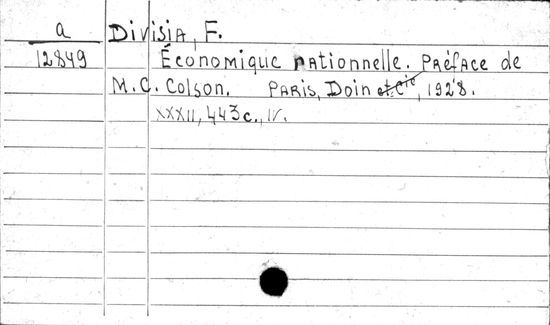 a
12849
Divisia, F.
Économique rationnelle. Préface de
M. C. Colson. Paris, Doin et Cie, 1928.
XXXII, 443 c., IV.